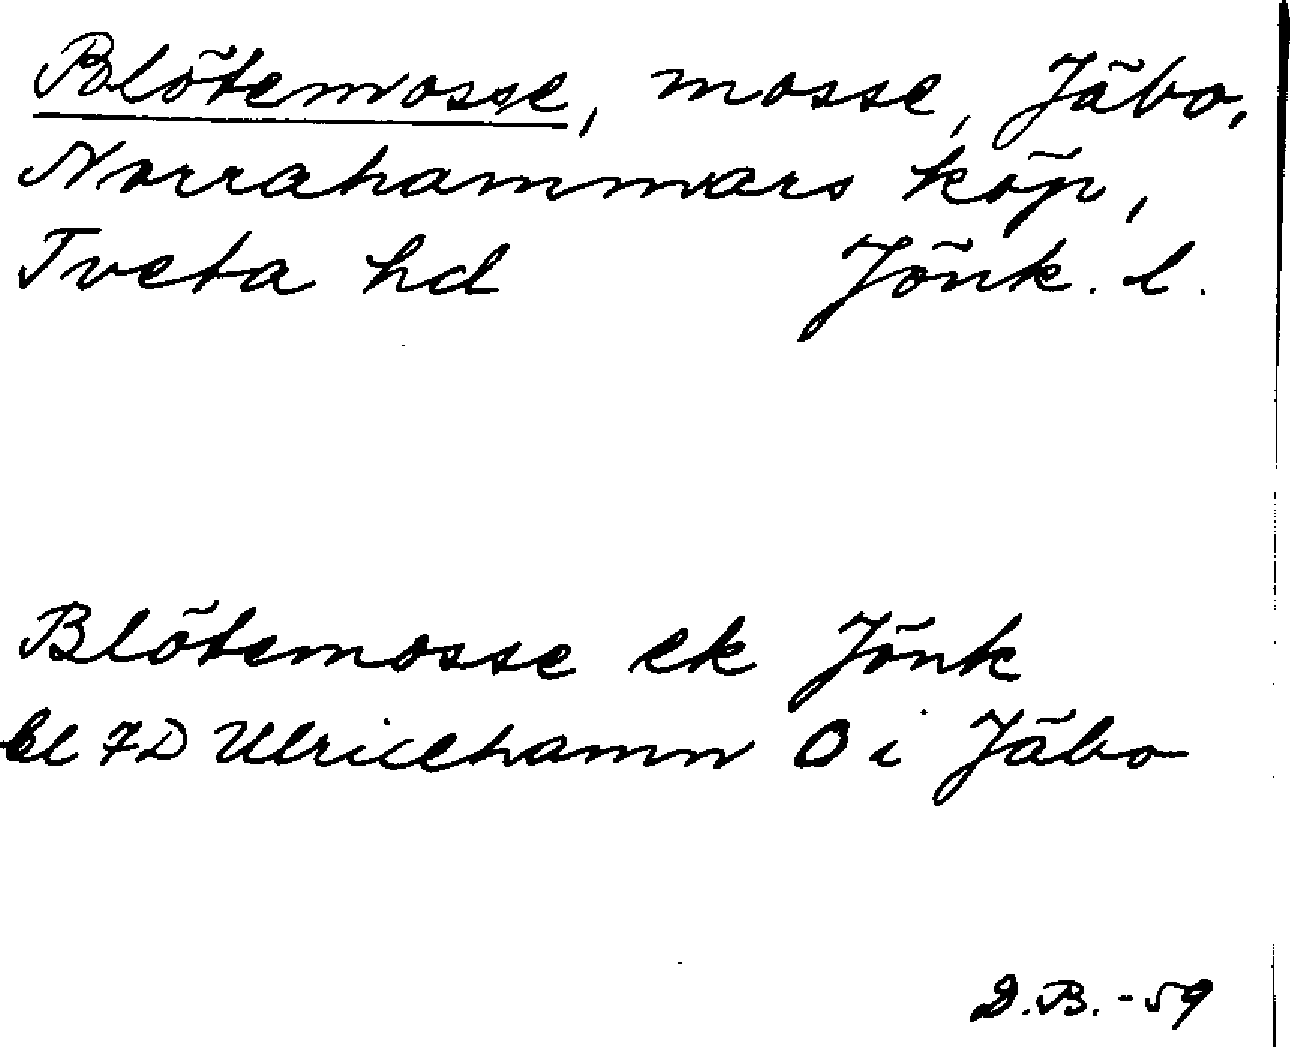 Blötemosse, mosse, Jäbo,
Norrahammars köp,
Tveta hd Jönk. l.
Blötemosse ek Jönk
bl 7D Ulricehamn O i Jäbo
D.B. -59